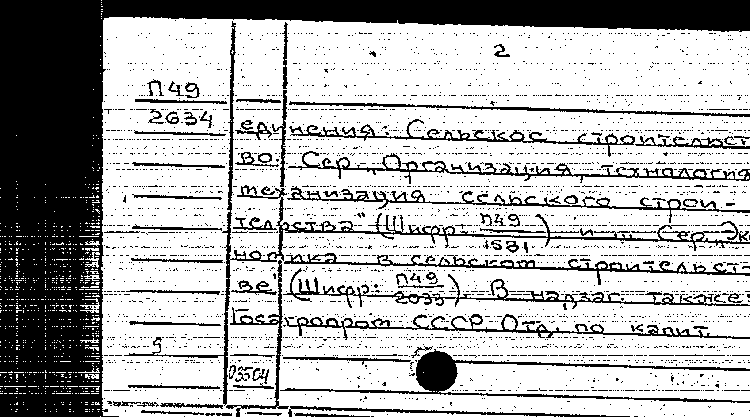 2
П49
2634
единения: Сельское строительст
во. Сер. „Организация, технология
механизация сельского строи-
тельства" (Шифр: П49/1531) и т Сер. „Эк
номика в сельском строительст-
ве (Шифр: П49/2033). В надзаг. также:
Госагропром СССР. Отд. по капит.
03504